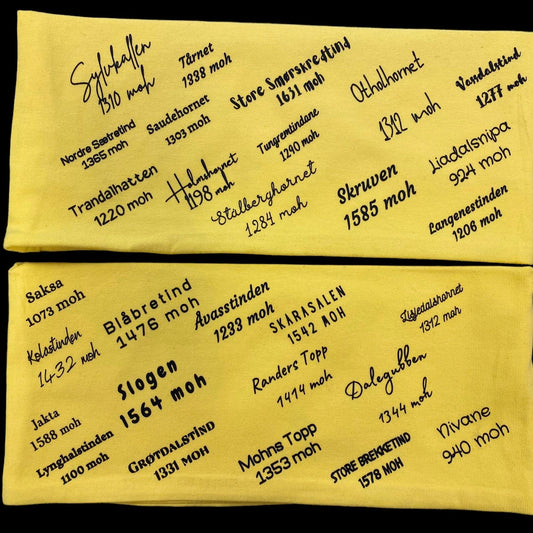 Sylvkallen
1310 moh
Tårnet
1338 moh
Store Smørskredtind
1631 moh
Otholhornet
1312 moh
Vardalstind
1277 moh
Nordre Sætretind
1365 moh
Saudehornet
1303 moh
Tungremtindane
1290 moh
Skruven
1585 moh
Liadalsnipa
924 moh
Trandalhatten
1220 moh
Holmshornet
1198 moh
Stålberghornet
1284 moh
Langenestinden
1206 moh
Saksa
1073 moh
Blåbretind
1476 moh
Åvasstinden
1233 moh
SKÅRASALEN
1542 MOH
1312 moh
Kolåstinden
1432 moh
Slogen
1564 moh
Randers Topp
1414 moh
Dalegubben
1344 moh
Jakta
1588 moh
Lynghalstinden
1100 moh
GRØTDALSTIND
1331 MOH
Mohns Topp
1353 moh
STORE BREKKETIND
1578 MOH
Nivane
940 moh